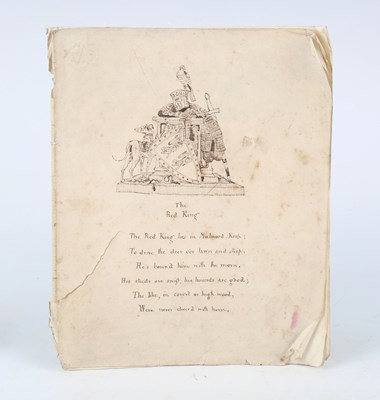 The
Red King
The Red King lies in Malwood Keep;
To drive the deer o'er lawn and steep,
He's bown'd him with the morn.
His steeds are swift, his hounds are good;
The like, in covert or high wood,
Were never cheer'd with horn.